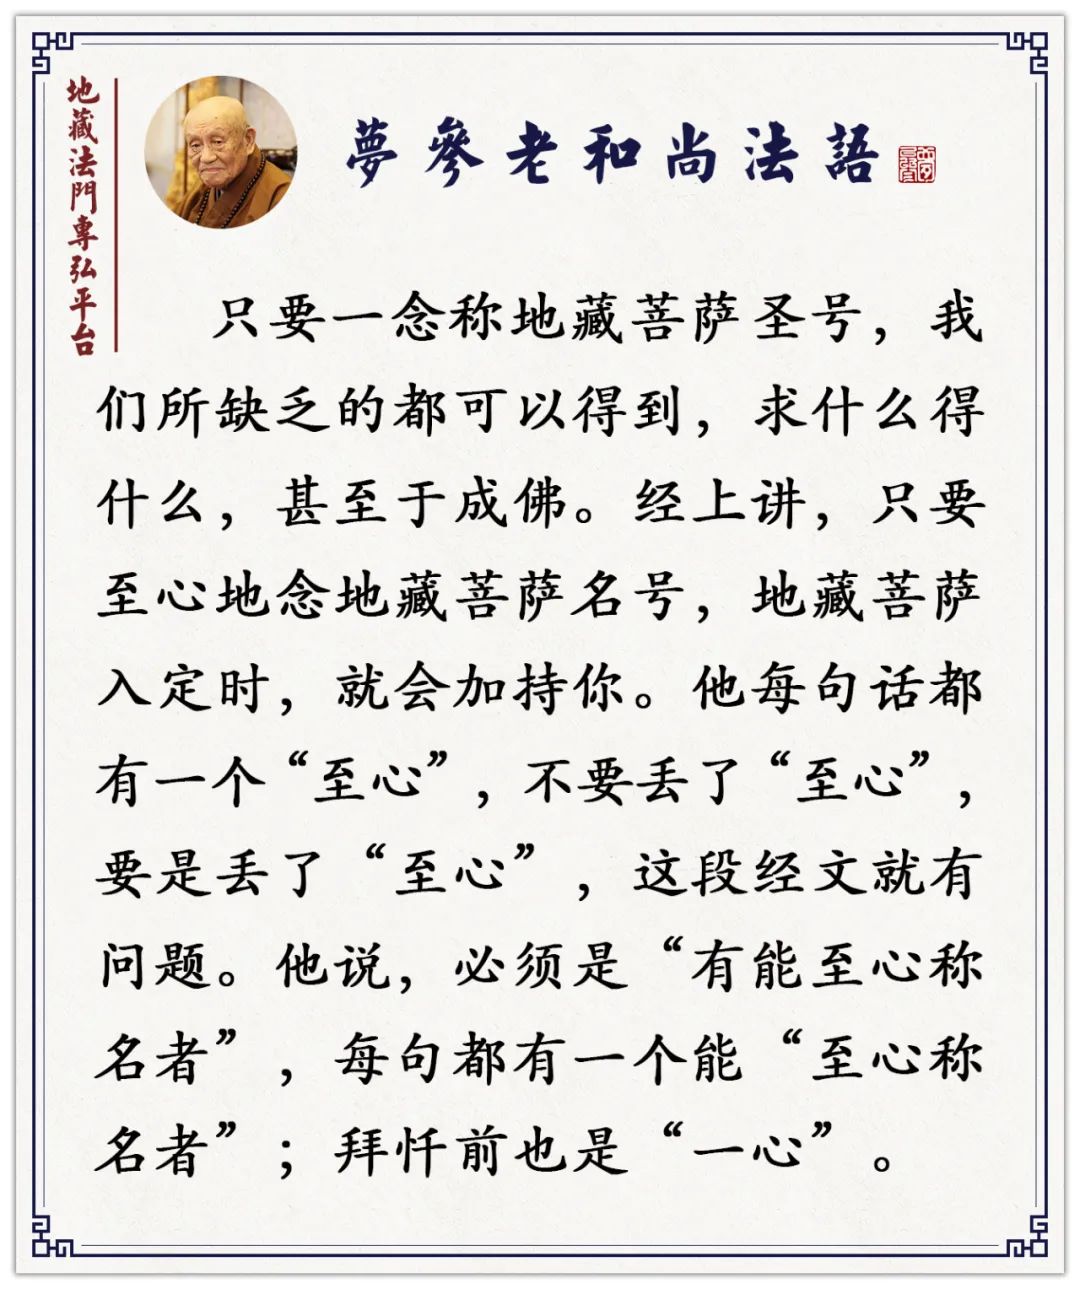 地藏法門專弘平台
夢參老和尚法語
只要一念称地藏菩萨圣号，我
们所缺乏的都可以得到，求什么得
什么，甚至于成佛。经上讲，只要
至心地念地藏菩萨名号，地藏菩萨
入定时，就会加持你。他每句话都
有一个“至心”，不要丢了“至心”，
要是丢了“至心”，这段经文就有
问题。他说，必须是“有能至心称
名者”，每句都有一个能“至心称
名者”；拜忏前也是“一心”。